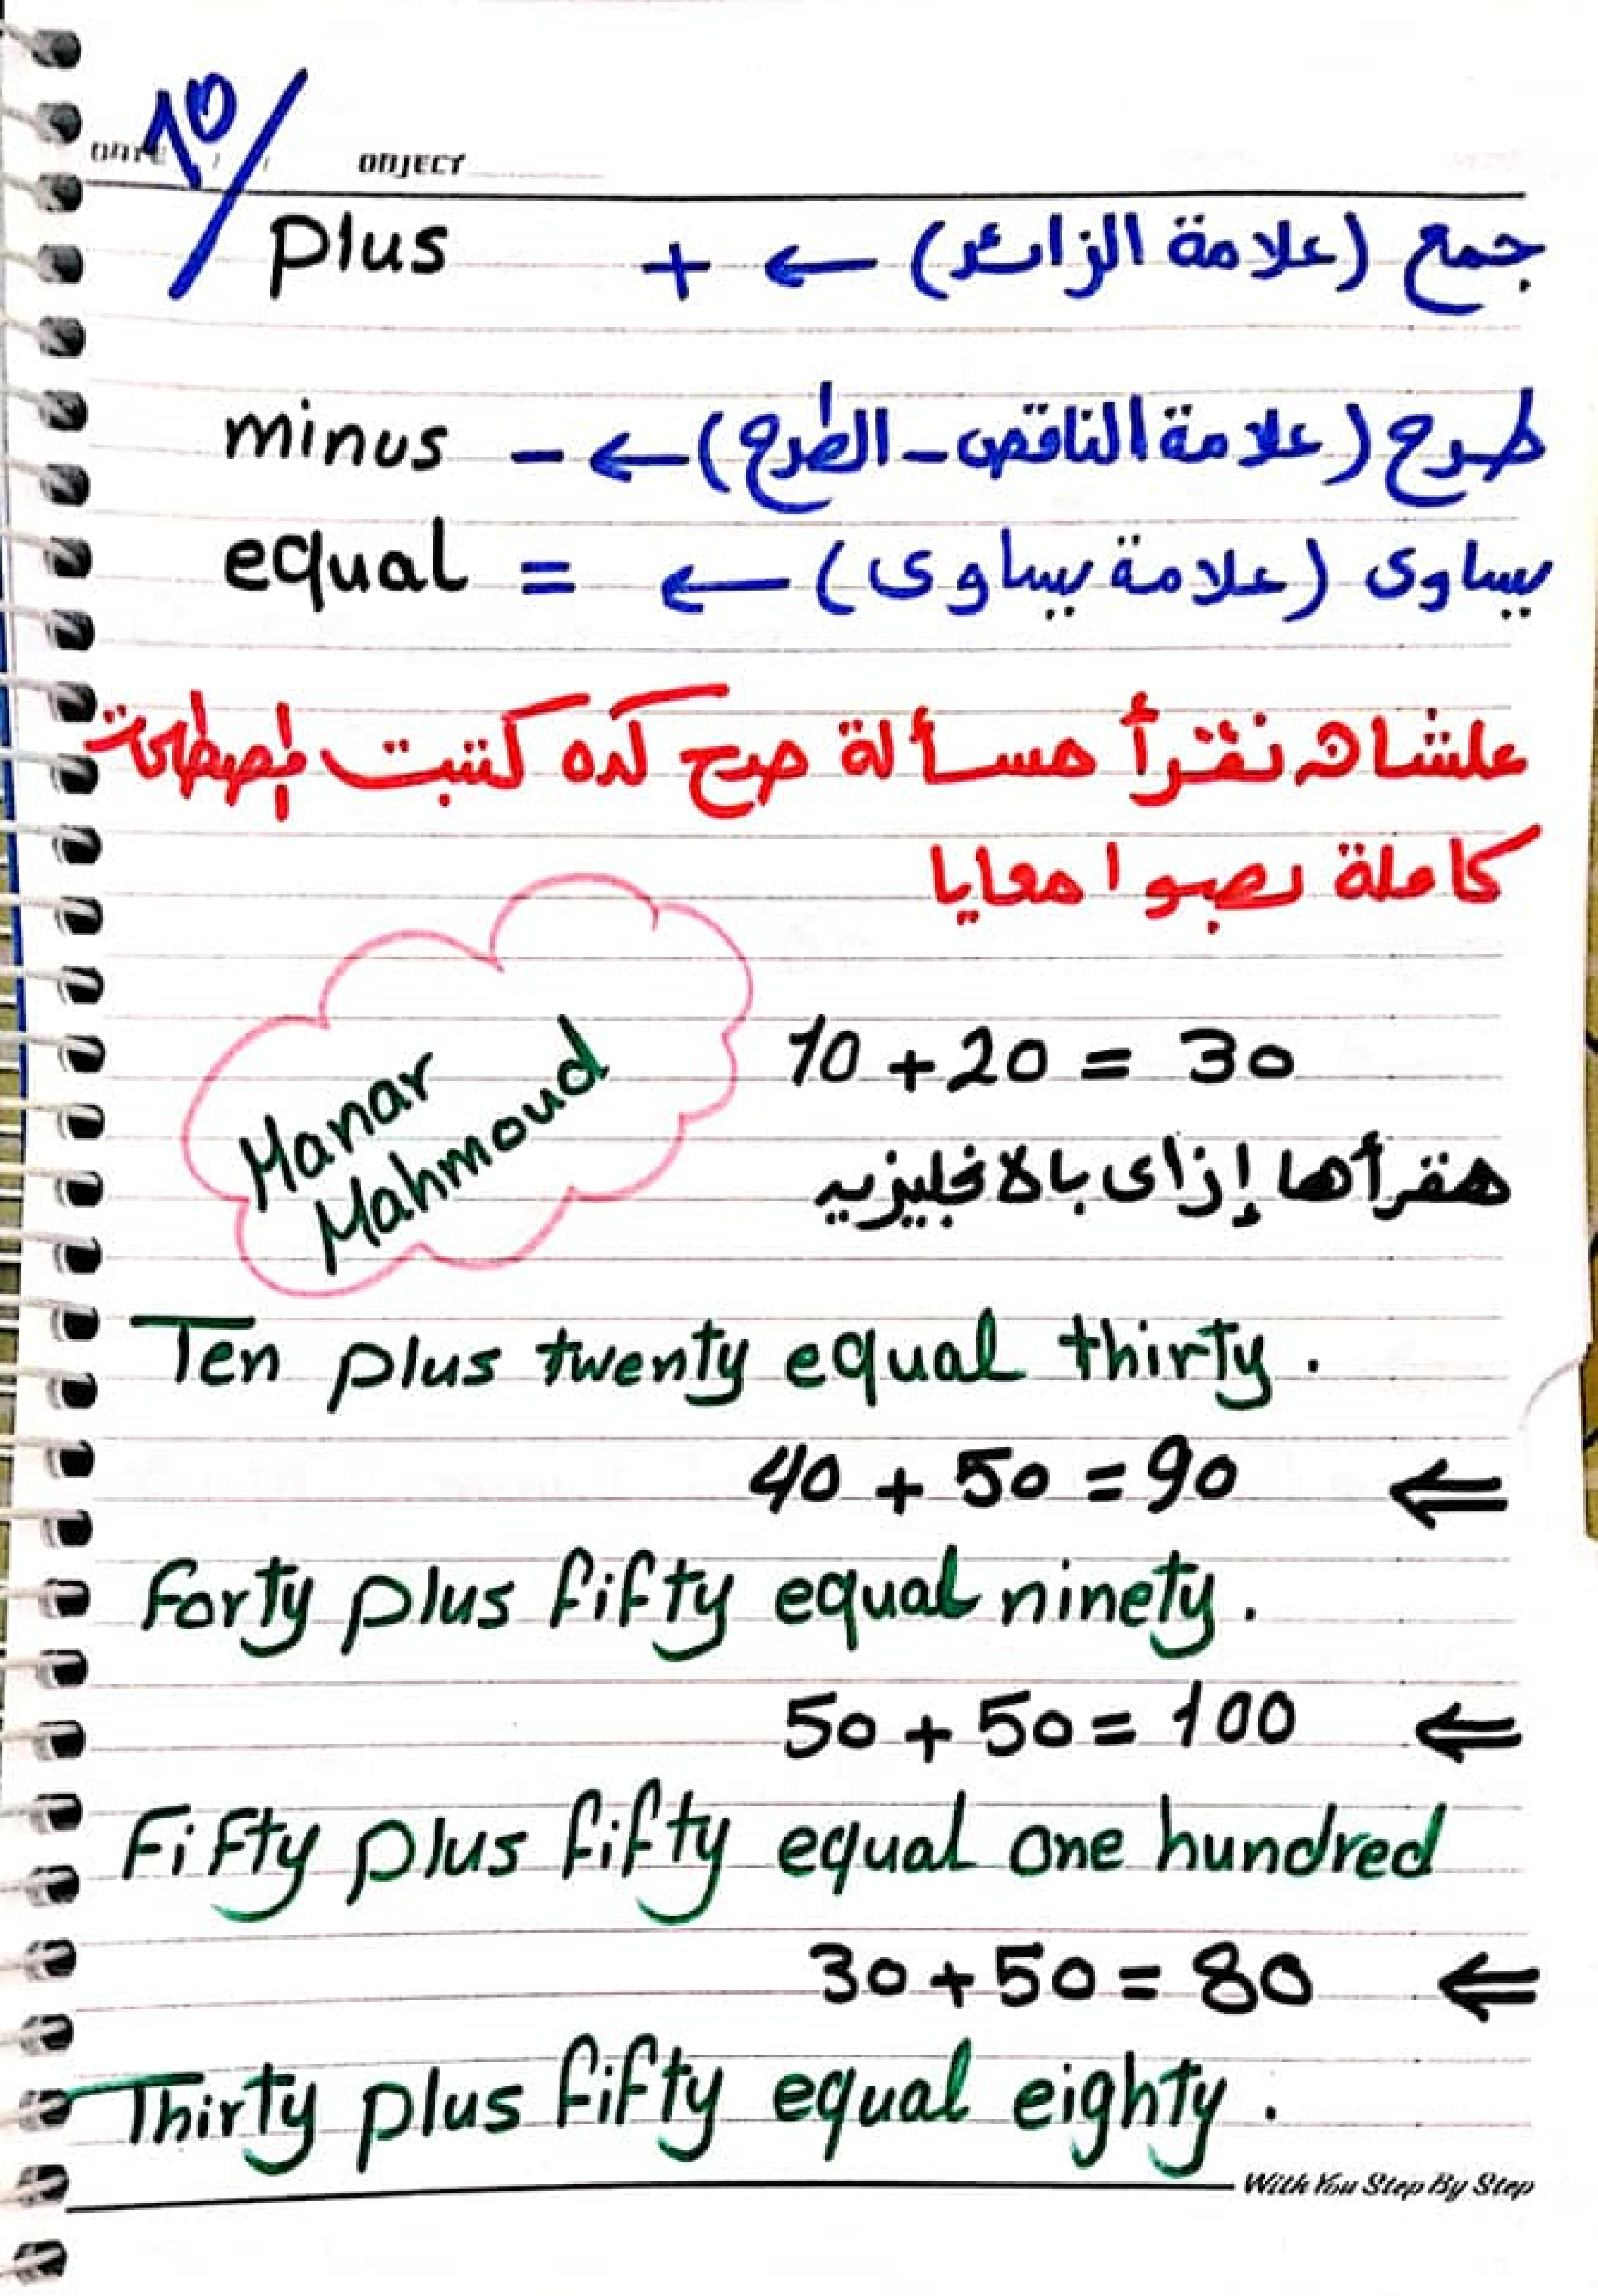 10/
DATE / / OBJECT
plus + ← جمع (علامة الزائد)
minus - ← طرح (علامة الناقص - الطرح)
equal = ← يساوى (علامة يساوى)
علشان نقرأ مسألة صح كده كتبت
كاملة بصوا معايا
Manar
Mahmoud
10 + 20 = 30
هنقرأها إزاى بالانجليزيه
Ten plus twenty equal thirty.
40 + 50 = 90 ⇐
Forty plus fifty equal ninety.
50 + 50 = 100 ⇐
Fifty plus fifty equal one hundred
30 + 50 = 80 ⇐
Thirty plus fifty equal eighty.
With You Step By Step